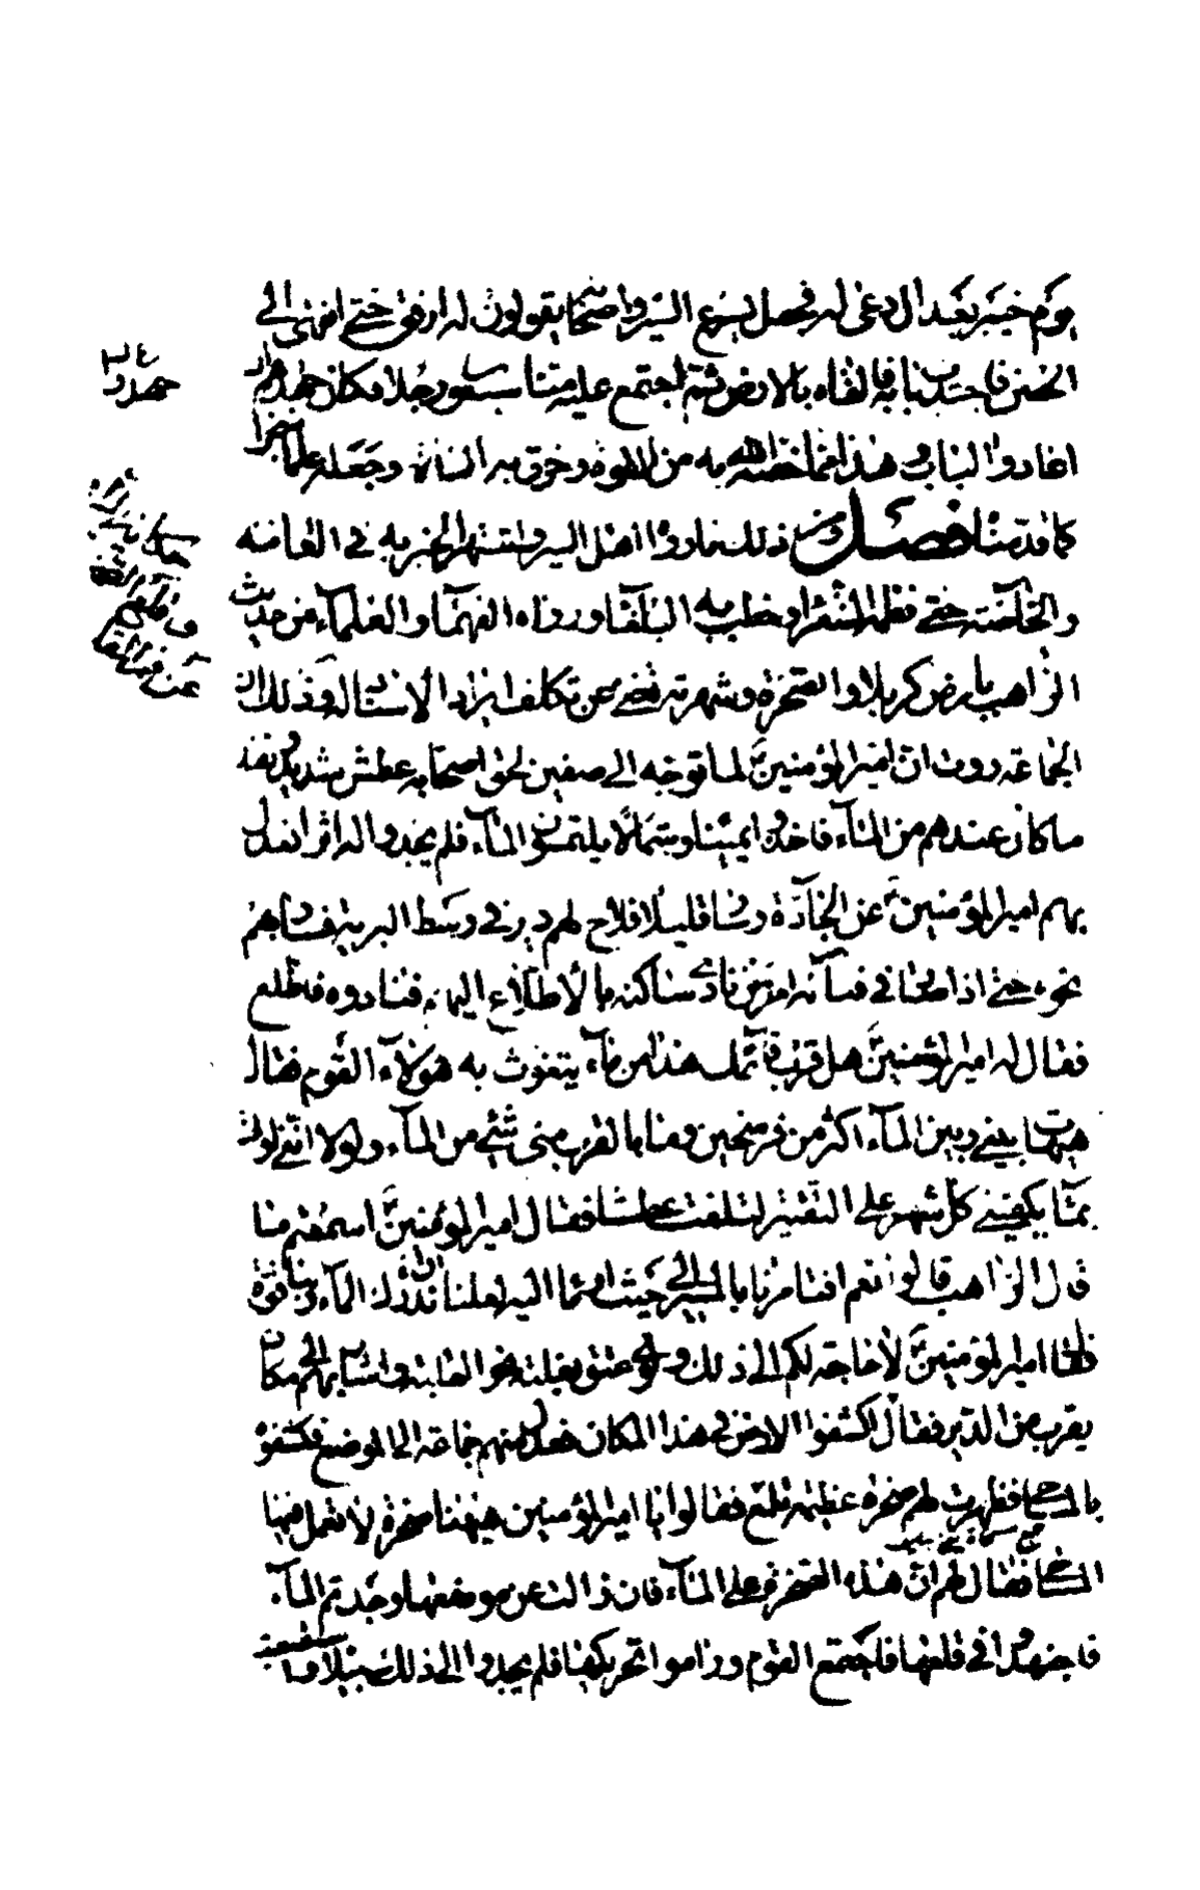 يوم خيبر بعد ان دعى له فجعل يسرع السير واصحابه يقولون له ارفق حتى انتهى الى
الحصن فاجتذب بابه فالقاه بالارض ثم اجتمع عليه منا سبعون رجلا فكان جهدهم ان
اعادوا الباب وهذا مما خصه الله به من القوة وخرق به العادة وجعله علما معجزا
كما قدمناه فصل ومن ذلك ما رواه اهل السير واشتهر الخبر به في العامة
والخاصة حتى نظمه الشعراء وخطب به البلغاء ورواه الفهماء والعلماء من حديث
الراهب بارض كربلا والصخرة وشهرته تغني عن تكلف ايراد الاسناد له وذلك ان
الجماعة روت ان امير المؤمنين لما توجه الى صفين لحق اصحابه عطش شديد ونفد
ما كان عندهم من الماء فاخذوا يمينا وشمالا يلتمسون الماء فلم يجدوا له اثرا فعدل
بهم امير المؤمنين عن الجادة وسار قليلا فلاح لهم دير في وسط البرية فسار بهم
نحوه حتى اذا صار في فنائه امر من نادى ساكنه بالاطلاع اليهم فنادوه فاطلع
فقال له امير المؤمنين هل قرب قائمك هذا من ماء يتغوث به هؤلاء القوم فقال
هيهات بيني وبين الماء اكثر من فرسخين وما بالقرب مني شيء من الماء ولولا انني اوتى
بماء يكفيني كل شهر على التقتير لتلفت عطشا فقال امير المؤمنين اسمعتم ما
قال الراهب قالوا نعم افتامرنا بالمسير الى حيث اومأ اليه لعلنا ان ندرك الماء وبنا قوة
فقال امير المؤمنين لا حاجة لكم الى ذلك ولوى عنق بغلته نحو القبلة واشار بهم الى مكان
يقرب من الدير فقال اكشفوا الارض في هذا المكان فعدل منهم جماعة الى الموضع فكشفوه
بالمساحي فظهرت لهم صخرة عظيمة تلمع فقالوا يا امير المؤمنين هيهنا صخرة لا تعمل فيها
المساحي فقال لهم ان هذه الصخرة على الماء فان زالت عن موضعها وجدتم الماء
فاجتهدوا في قلعها فاجتمع القوم وراموا تحريكها فلم يجدوا الى ذلك سبيلا واستصعبت